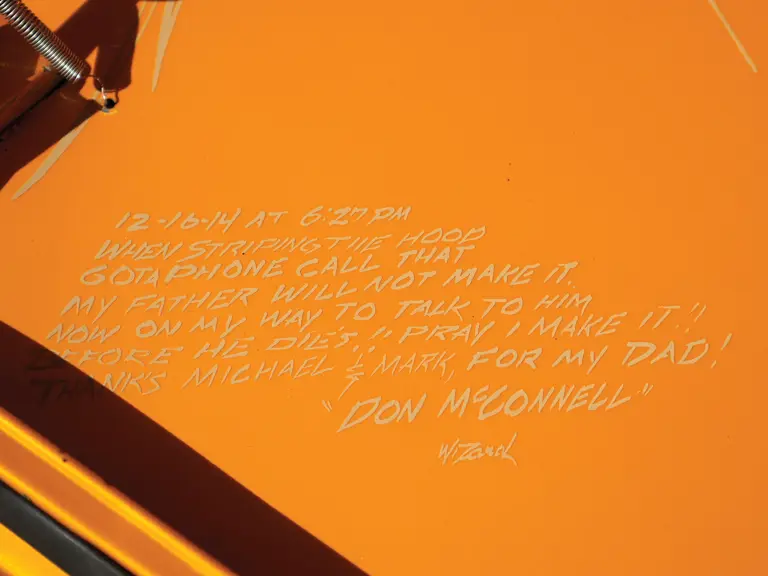 12-16-14 AT 6:27 PM
WHEN STRIPING THE HOOD
GOT A PHONE CALL THAT
MY FATHER WILL NOT MAKE IT.
NOW ON MY WAY TO TALK TO HIM
BEFORE HE DIE'S.!! PRAY I MAKE IT.!!
THANKS MICHAEL & MARK, FOR MY DAD!
"DON McCONNELL"
Wizard